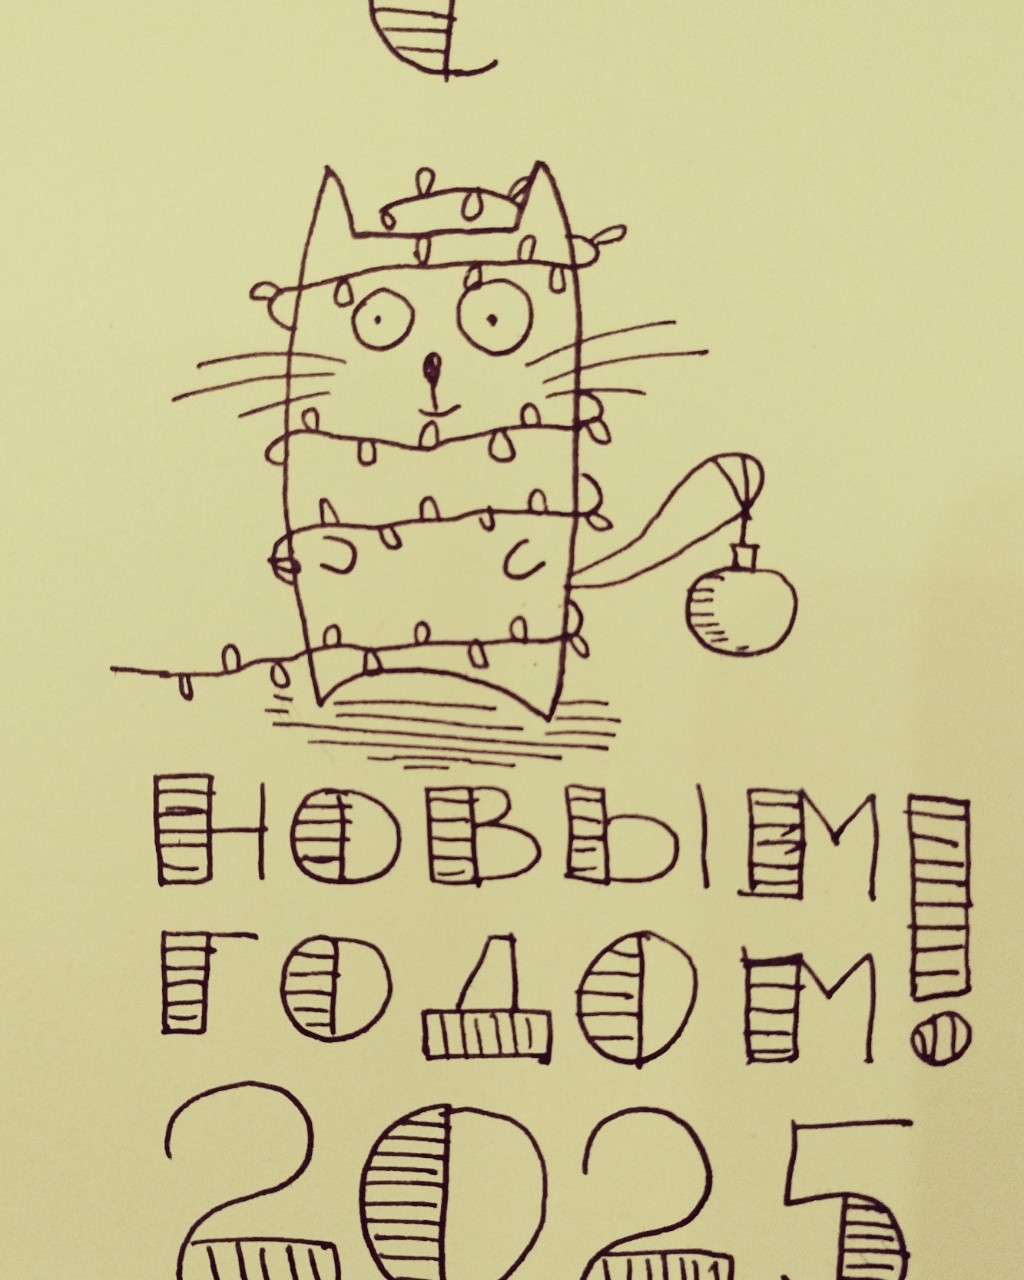 С
НОВЫМ!
ГОДОМ
2025